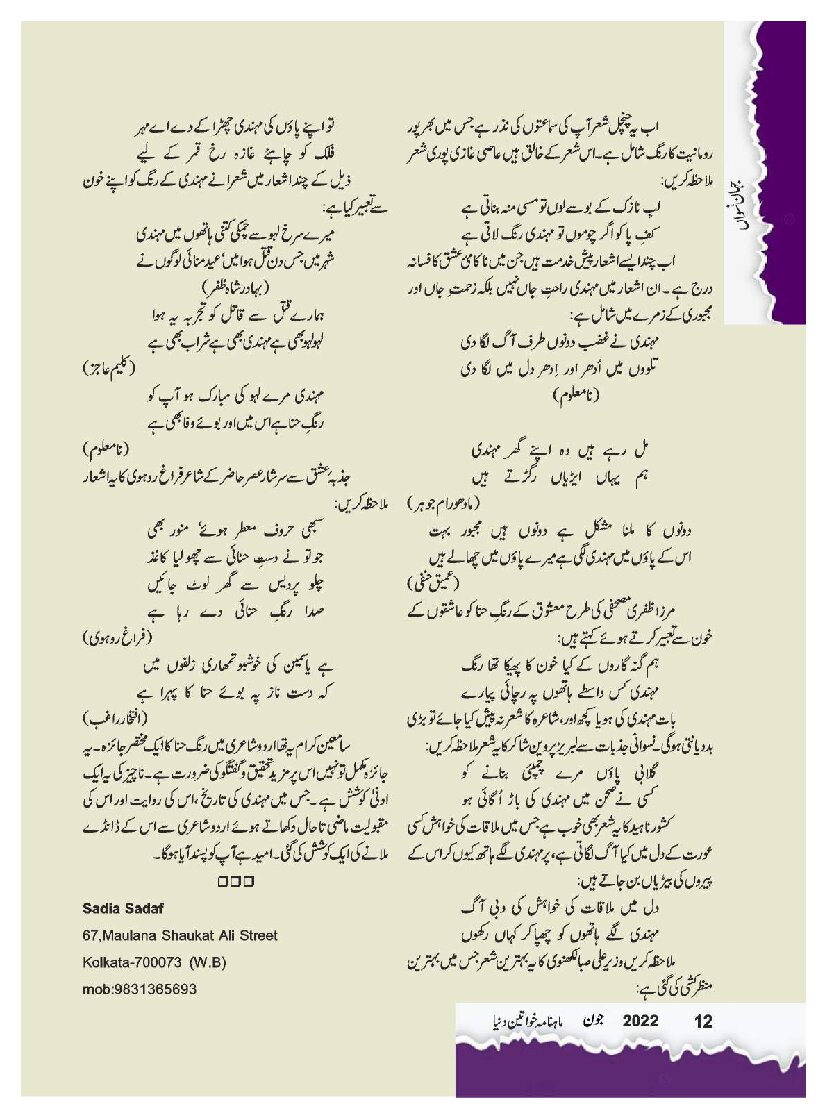 جہان نسواں
اب یہ چنچل شعر آپ کی سماعتوں کی نذر ہے جس میں بھرپور
رومانیت کا رنگ شامل ہے۔ اس شعر کے خالق ہیں عاصی غازی پوری شعر
ملاحظہ کریں:
لبِ نازک کے بوسے لوں تو مسی منہ بناتی ہے
کفِ پا کو اگر چوموں تو مہندی رنگ لاتی ہے
اب چند ایسے اشعار پیش خدمت ہیں جن میں ناکامیٔ عشق کا فسانہ
درج ہے ۔ ان اشعار میں مہندی راحتِ جاں نہیں بلکہ زحمتِ جاں اور
مجبوری کے زمرے میں شامل ہے:
مہندی نے غضب دونوں طرف آگ لگا دی
تلووں میں اُدھر اور اِدھر دل میں لگا دی
(نامعلوم)
مل رہے ہیں وہ اپنے گھر مہندی
ہم یہاں ایڑیاں رگڑتے ہیں
(مادھورام جوہر)
دونوں کا ملنا مشکل ہے دونوں ہیں مجبور بہت
اس کے پاؤں میں مہندی لگی ہے میرے پاؤں میں چھالے ہیں
(عمیق حنفی)
مرزا ظفری مصحفی کی طرح معشوق کے رنگِ حنا کو عاشقوں کے
خون سے تعبیر کرتے ہوئے کہتے ہیں:
ہم گنہ گاروں کے کیا خون کا پھیکا تھا رنگ
مہندی کس واسطے ہاتھوں پہ رچائی پیارے
بات مہندی کی ہو یا کچھ اور، شاعرہ کا شعر نہ پیش کیا جائے تو بڑی
بددیانتی ہوگی۔ نسوانی جذبات سے لبریز پروین شاکر کا یہ شعر ملاحظہ کریں:
گلابی پاؤں مرے چمپئی بنانے کو
کسی نے صحن میں مہندی کی باڑ اُگائی ہو
کشور ناہید کا یہ شعر بھی خوب ہے جس میں ملاقات کی خواہش کسی
عورت کے دل میں کیا آگ لگاتی ہے، پر مہندی لگے ہاتھ کیوں کر اس کے
پیروں کی بیڑیاں بن جاتے ہیں:
دل میں ملاقات کی خواہش کی دبی آگ
مہندی لگے ہاتھوں کو چھپا کر کہاں رکھوں
ملاحظہ کریں وزیر علی صبا لکھنوی کا یہ بہترین شعر جس میں بہترین
منظر کشی کی گئی ہے:
تو اپنے پاؤں کی مہندی چھڑا کے دے اے مہر
فلک کو چاہئے غازہ رخِ قمر کے لیے
ذیل کے چند اشعار میں شعرا نے مہندی کے رنگ کو اپنے خون
سے تعبیر کیا ہے:
میرے سرخ لہو سے چمکی کتنی ہاتھوں میں مہندی
شہر میں جس دن قتل ہوا میں‘ عید منائی لوگوں نے
(بہادر شاہ ظفر)
ہمارے قتل سے قاتل کو تجربہ یہ ہوا
لہو لہو بھی ہے مہندی بھی ہے شراب بھی ہے
(کلیم عاجز)
مہندی مرے لہو کی مبارک ہو آپ کو
رنگِ حنا ہے اس میں اور بوئے وفا بھی ہے
(نامعلوم)
جذبۂ عشق سے سرشار عصر حاضر کے شاعر فراغ روہوی کا یہ اشعار
ملاحظہ کریں:
سبھی حروف معطر ہوئے‘ منور بھی
جو تو نے دستِ حنائی سے چھو لیا کاغذ
چلو پردیس سے گھر لوٹ جائیں
صدا رنگِ حنائی دے رہا ہے
(فراغ روہوی)
ہے یاسمین کی خوشبو تمھاری زلفوں میں
کہ دست ناز پہ بوئے حنا کا پہرا ہے
(افتخار راغب)
سامعین کرام یہ تھا اردو شاعری میں رنگ حنا کا ایک مختصر جائزہ۔ یہ
جائزہ مکمل تو نہیں اس پر مزید تحقیق و گفتگو کی ضرورت ہے۔ ناچیز کی یہ ایک
ادنیٰ کوشش ہے۔ جس میں مہندی کی تاریخ، اس کی روایت اور اس کی
مقبولیت ماضی تا حال دکھاتے ہوئے اردو شاعری سے اس کے ڈانڈے
ملانے کی ایک کوشش کی گئی۔ امید ہے آپ کو پسند آیا ہوگا۔
□□□
Sadia Sadaf
67,Maulana Shaukat Ali Street
Kolkata-700073 (W.B)
mob:9831365693
ماہنامہ خواتین دنیا جون 2022 12